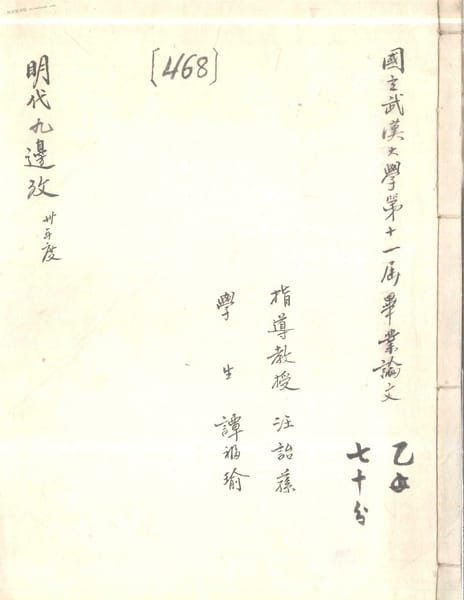 國立武漢大學第十一屆畢業論文
乙
七十分
指導教授 汪詒蓀
學生 譚福瑜
[468]
明代九邊攷 卅年度